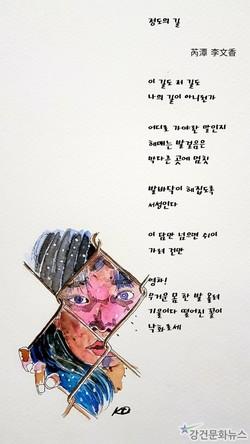 정도의 길
芮潭 李文香
이 길도 저 길도
나의 길이 아니런가
어디로 가야 할 말인지
헤매는 발걸음은
막다른 곳에 멈칫
발바닥이 헤집도록
서성인다
이 담만 넘으면 쉬이
가려 건만
영차!
무거운 몸 한 발 올려
기울이다 떨어진 꽃이
낙화로세
KD
강건문화뉴스